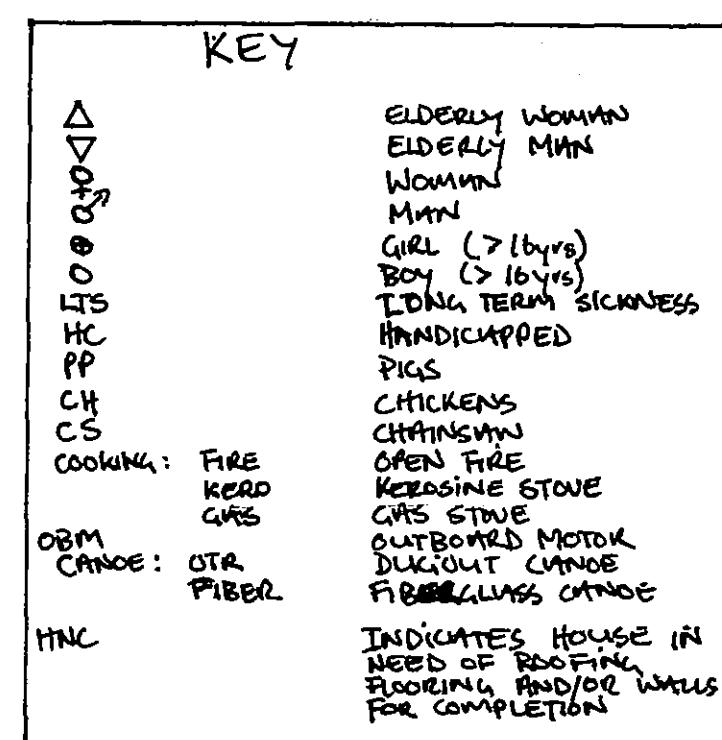 KEY
△ ELDERLY WOMAN
▽ ELDERLY MAN
♀ WOMAN
♂ MAN
⊕ GIRL (>16yrs)
○ BOY (>16yrs)
LTS LONG TERM SICKNESS
HC HANDICAPPED
PP PIGS
CH CHICKENS
CS CHAINSAW
COOKING: FIRE OPEN FIRE
KERO KEROSINE STOVE
GAS GAS STOVE
OBM OUTBOARD MOTOR
CANOE: OTR DUGOUT CANOE
FIBER FIBERGLASS CANOE
HNC INDICATES HOUSE IN
NEED OF ROOFING
FLOORING AND/OR WALLS
FOR COMPLETION